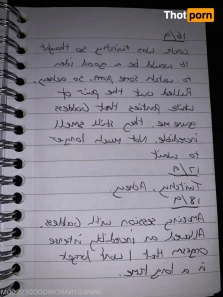 Thotporn
16/9
Cock was twitching so thought
it would be a good idea
to watch some porn. So achey.
Pulled out the pair of
white panties that Goddess
gave me they still smell
incredible. Not much longer
to wait
17/9
Twitching, Achey
18/9
Amazing session with Goddess.
Allowed an incredibly intense
orgasm that I wont forget
in a long time.
WWW.GYNARCHYGODDESS.COM